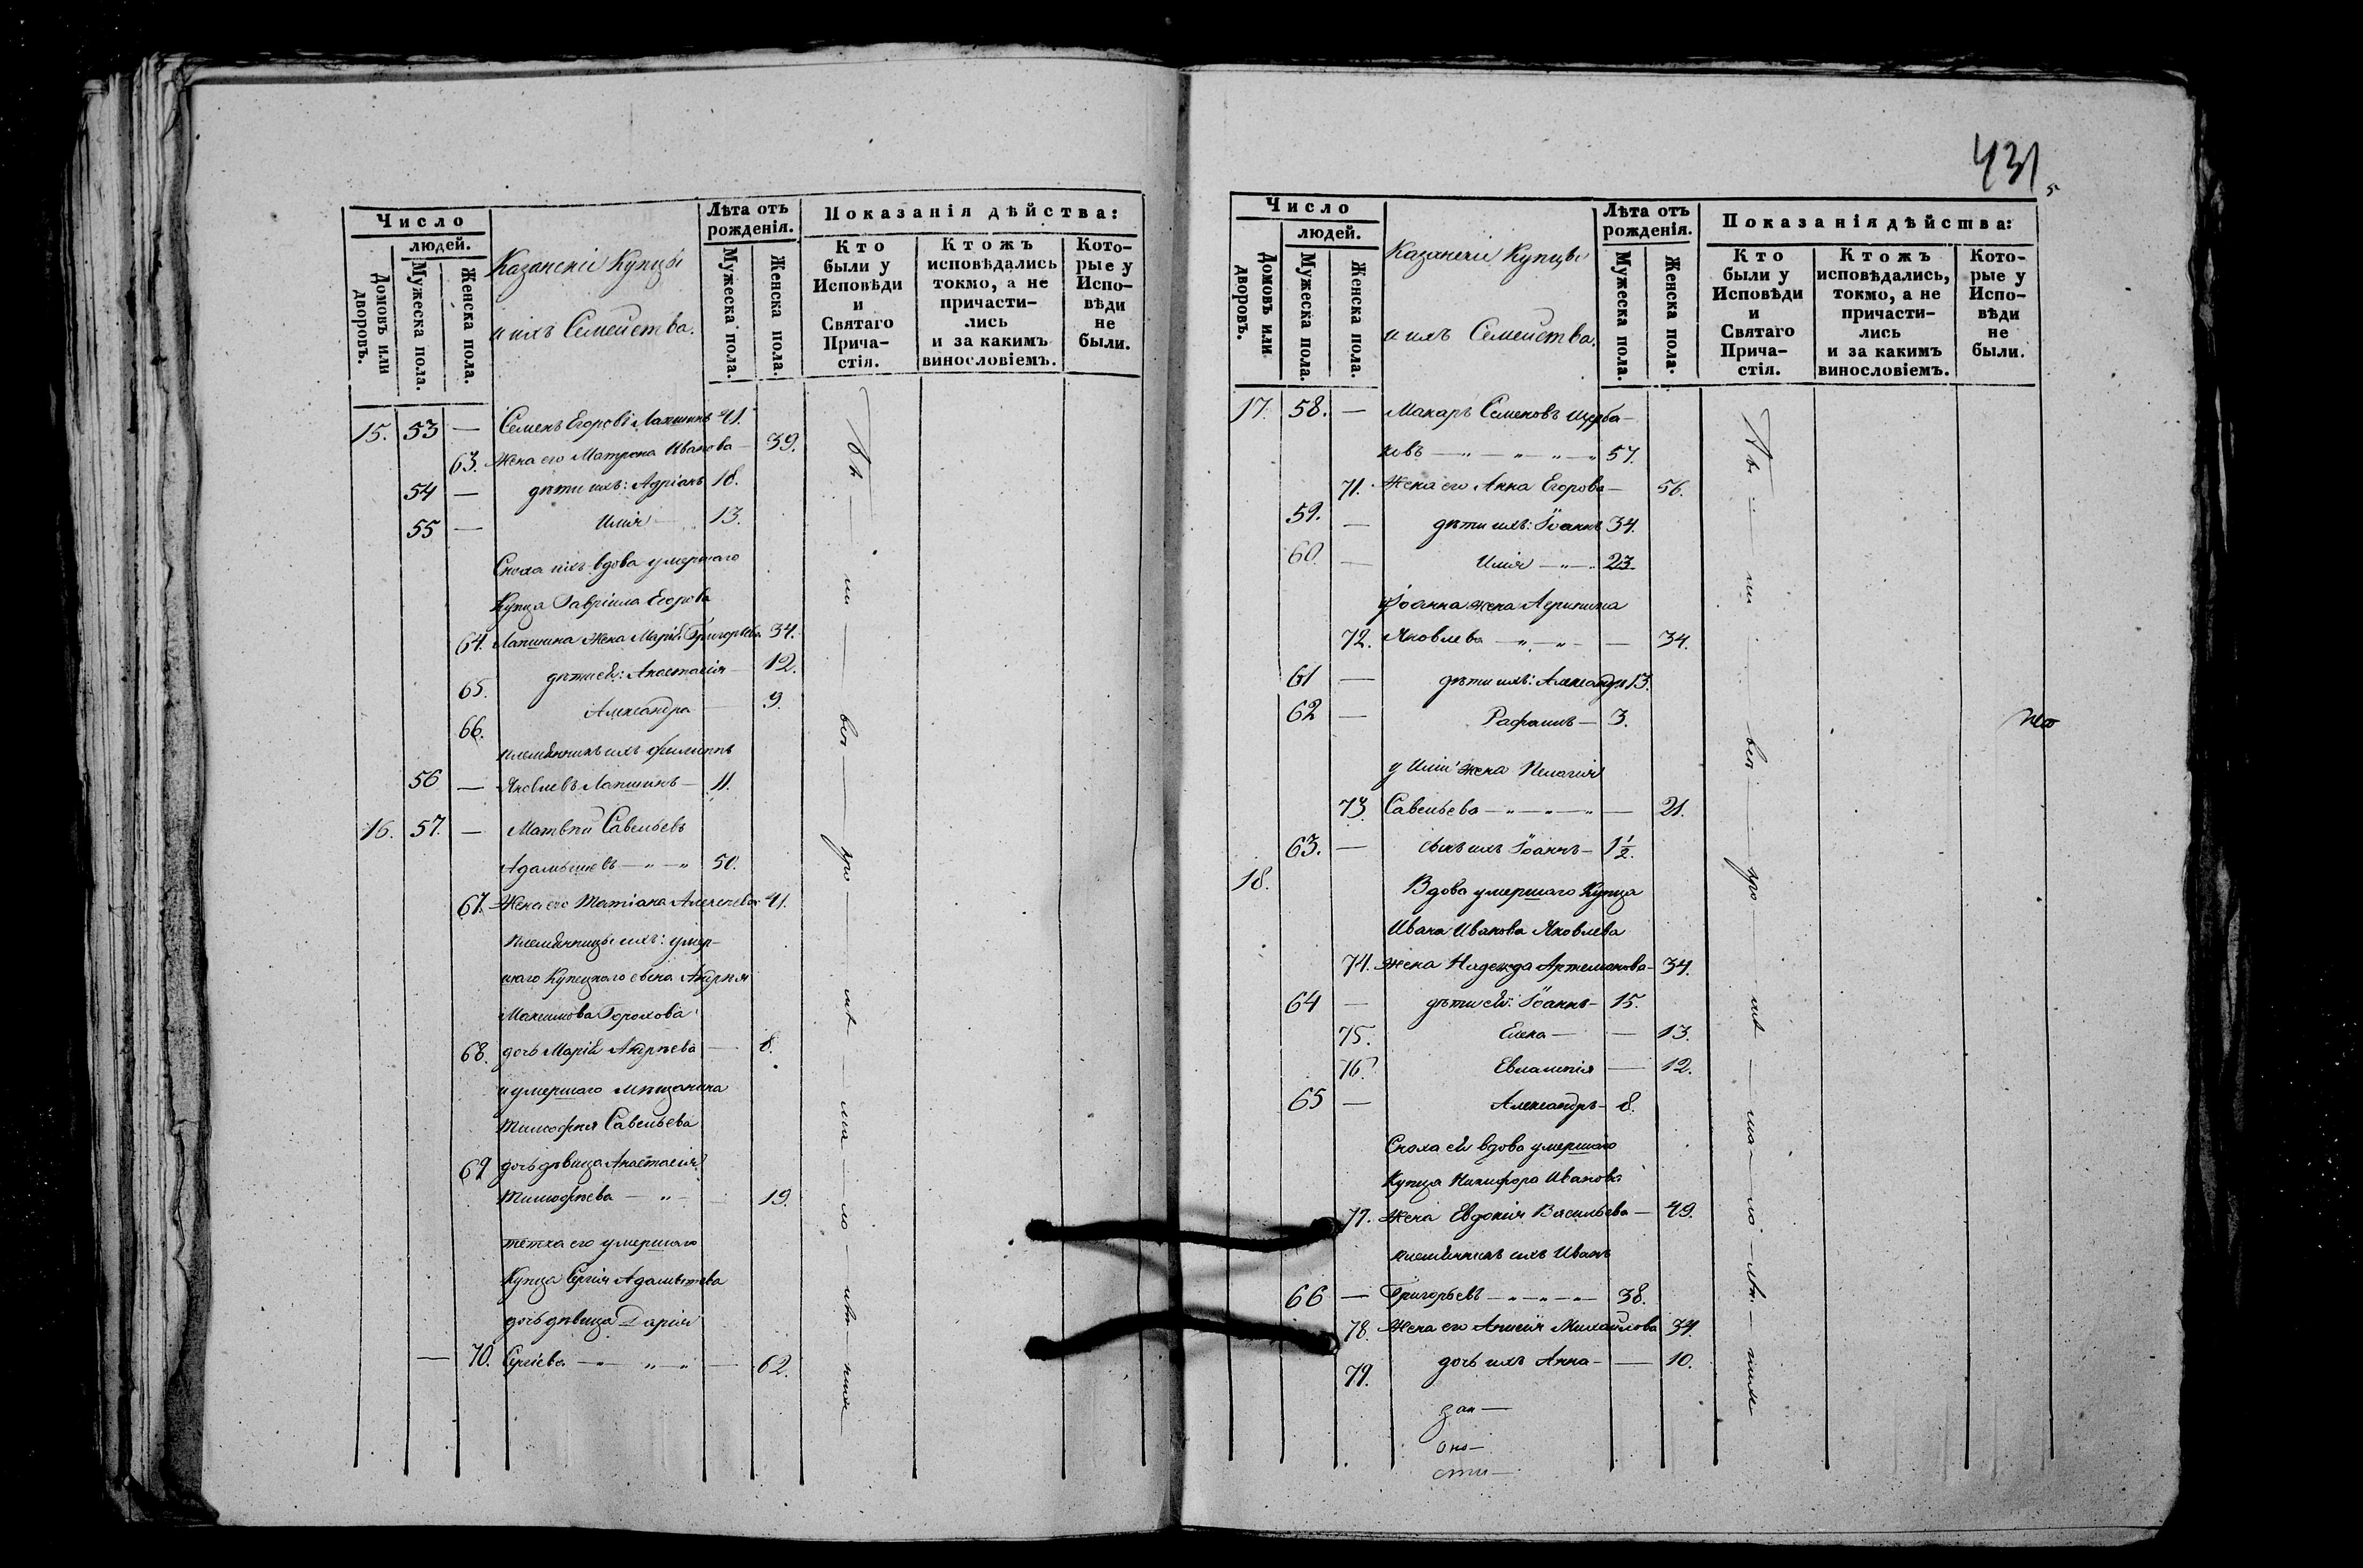 431
5
Число
людей.
Домовъ или дворовъ.
Мужеска пола.
Женска пола.
Казанскіе Купцы
и ихъ Семейства.
Лѣта отъ
рожденія.
Мужеска пола.
Женска пола.
Показанія дѣйства:
Кто
были у
Исповѣди
и
Святаго
Прича-
стія.
Ктожъ
исповѣдались
токмо, а не
причасти-
лись
и за какимъ
винословіемъ.
Кото-
рые у
Испо-
вѣди
не
были.
15. 53 — Семенъ Егоровъ Лапшинъ 41.
63. Жена его Матрона Иванова — 39.
54 — дѣти ихъ: Адріанъ 18.
55 — Илія — 13.
Сноха ихъ вдова умершаго
Купца Гавріила Егорова
64. Лапшина жена Марія Григорьева 34.
65. дѣти ея: Анастасія — 12.
66. Александра — 9.
племянникъ ихъ Филиппъ
56 — Яковлевъ Лапшинъ — 11.
16. 57. — Матвѣй Савельевъ
— „ — „ 50.
67. Жена его Татіана Алексѣева 41.
Племянницы ихъ: умер-
шаго Купецкаго сына Андрея
Максимова Горохова
68. дочь Марія Андреева — 8.
и умершаго мѣщанина
Тимофея Савельева
69 дочь дѣвица Анастасія
Тимофѣева — „ — 19.
тетка его умершаго
Купца Сергія
дочь дѣвица Дарія
— 70. Сергіева — „ — „ — 62.
Число
людей.
Домовъ или дворовъ.
Мужеска пола.
Женска пола.
Казанскіе Купцы
и ихъ Семейства.
Лѣта отъ
рожденія.
Мужеска пола.
Женска пола.
Показанія дѣйства:
Кто
были у
Исповѣди
и
Святаго
Прича-
стія.
Ктожъ
исповѣдались,
токмо, а не
причасти-
лись
и за какимъ
винословіемъ.
Кото-
рые у
Испо-
вѣди
не
были.
17. 58. — Макаръ Семеновъ Щерба-
ковъ — „ — „ — „ — „ 57.
71. Жена его Анна Егорова — 56.
59. — дѣти ихъ: Іоаннъ 34.
60. — Илія — „ — 23.
у Іоанна жена Агрипина
72. Яковлева — „ — „ — — 34.
61 — дѣти ихъ: Александръ 13.
62 — Рафаилъ — 3.
у Иліи жена Пелагія
73. Савельева — „ — „ — „ — 21.
63. — сынъ ихъ Іоаннъ — 1½.
18. Вдова умершаго Купца
Ивана Иванова Яковлева
74. жена Надежда Артемонова — 34.
64 — дѣти ея: Іоаннъ — 15.
75. Елена — — 13.
76. Евлампія — 12.
65 — Александръ — 8.
Сноха ея вдова умершаго
Купца Никифора Иванова
77. Жена Евдокія Васильева — 49.
племянникъ ихъ Иванъ
66 — Григорьевъ — „ — „ — „ — 38.
78. Жена его Анисія Михайлова 34.
79. дочь ихъ Анна — — 10.